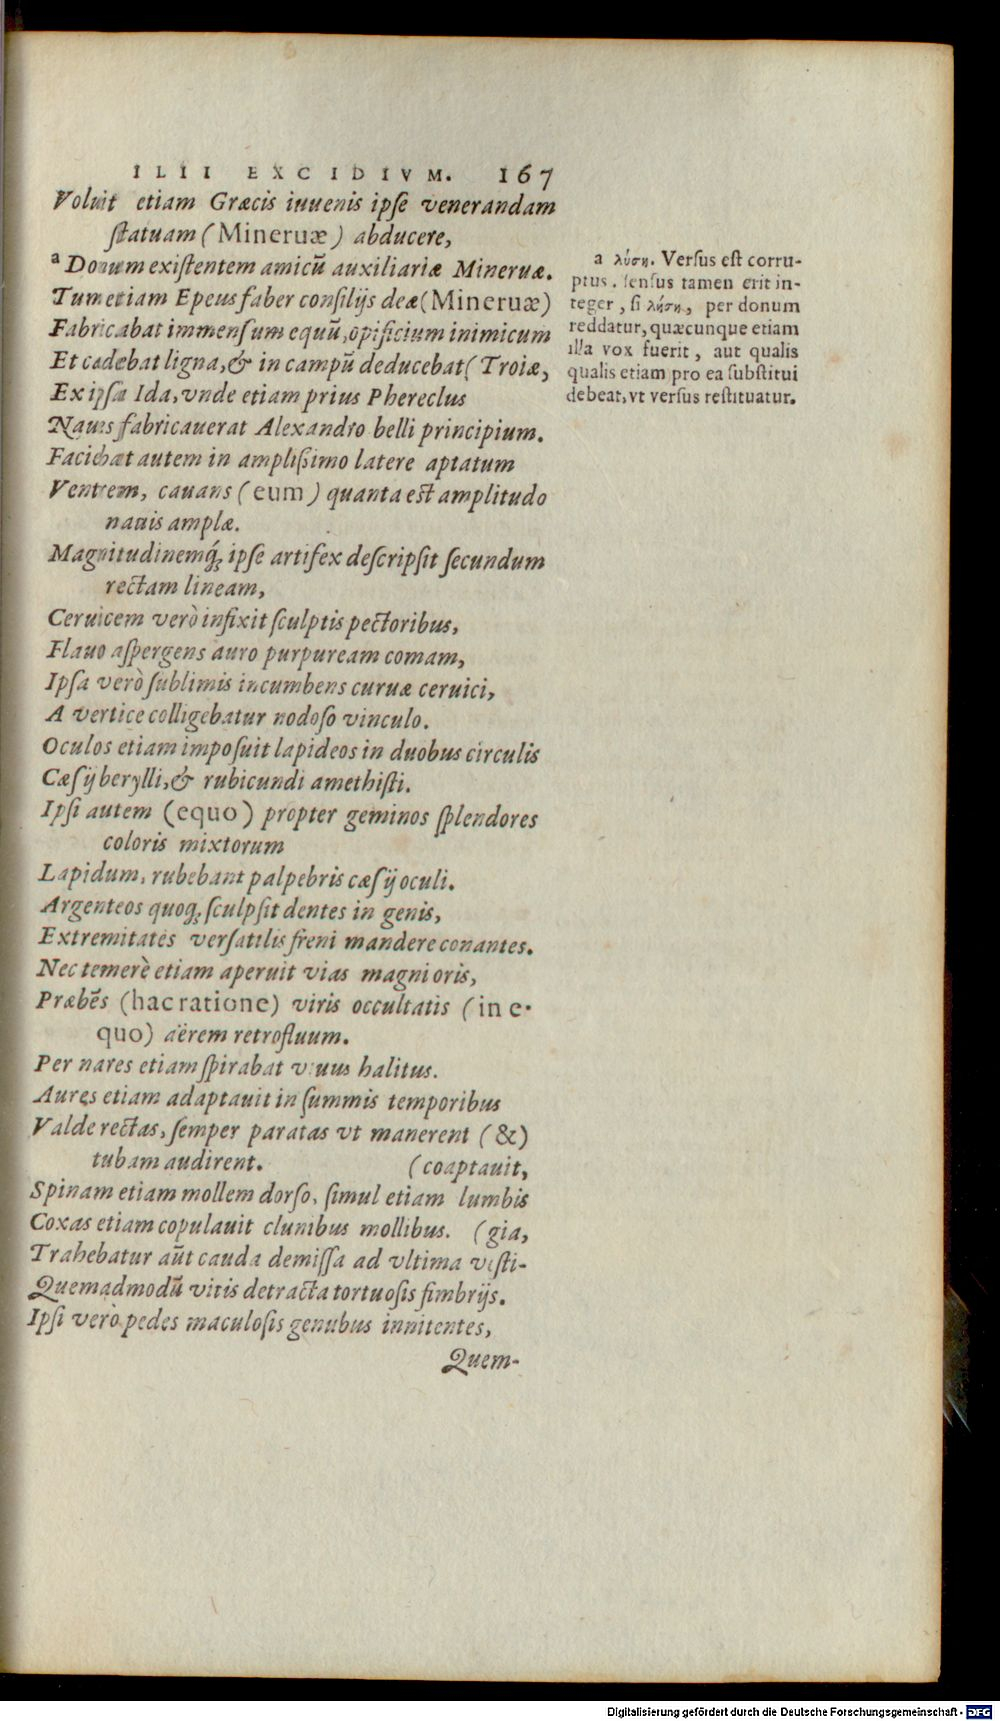 ILII EXCIDIVM. 167
Voluit etiam Græcis iuuenis ipse venerandam
statuam (Mineruæ) abducere,
a Donum existentem amicū auxiliariæ Mineruæ.
Tum etiam Epeus faber consilijs deæ (Mineruæ)
Fabricabat immensum equū, opificium inimicum
Et cædebat ligna, & in campū deducebat (Troiæ,
Ex ipsa Ida, vnde etiam prius Phereclus
Naues fabricauerat Alexandro belli principium.
Faciebat autem in amplißimo latere aptatum
Ventrem, cauans (eum) quanta est amplitudo
nauis amplæ.
Magnitudinemq́; ipse artifex descripsit secundum
rectam lineam,
Ceruicem verò infixit sculptis pectoribus,
Flauo aspergens auro purpuream comam,
Ipsa verò sublimis incumbens curuæ ceruici,
A vertice colligebatur nodoso vinculo.
Oculos etiam imposuit lapideos in duobus circulis
Cæsij berylli, & rubicundi amethisti.
Ipsi autem (equo) propter geminos splendores
coloris mixtorum
Lapidum, rubebant palpebris cæsij oculi.
Argenteos quoq; sculpsit dentes in genis,
Extremitates versatilis freni mandere conantes.
Nec temerè etiam aperuit vias magni oris,
Præbēs (hac ratione) viris occultatis (in e-
quo) aërem retrofluum.
Per nares etiam spirabat viuus halitus.
Aures etiam adaptauit in summis temporibus
Valde rectas, semper paratas vt manerent (&)
tubam audirent. (coaptauit,
Spinam etiam mollem dorso, simul etiam lumbis
Coxas etiam copulauit clunibus mollibus. (gia,
Trahebatur aūt cauda demissa ad vltima vesti-
Quemadmodū vitis detracta tortuosis fimbrijs.
Ipsi verò pedes maculosis genubus innitentes,
Quem-
a λύση. Versus est corru-
ptus. sensus tamen erit in-
teger, si λύση, per donum
reddatur, quæcunque etiam
illa vox fuerit, aut qualis
qualis etiam pro ea substitui
debeat, vt versus restituatur.
Digitalisierung gefördert durch die Deutsche Forschungsgemeinschaft - DFG